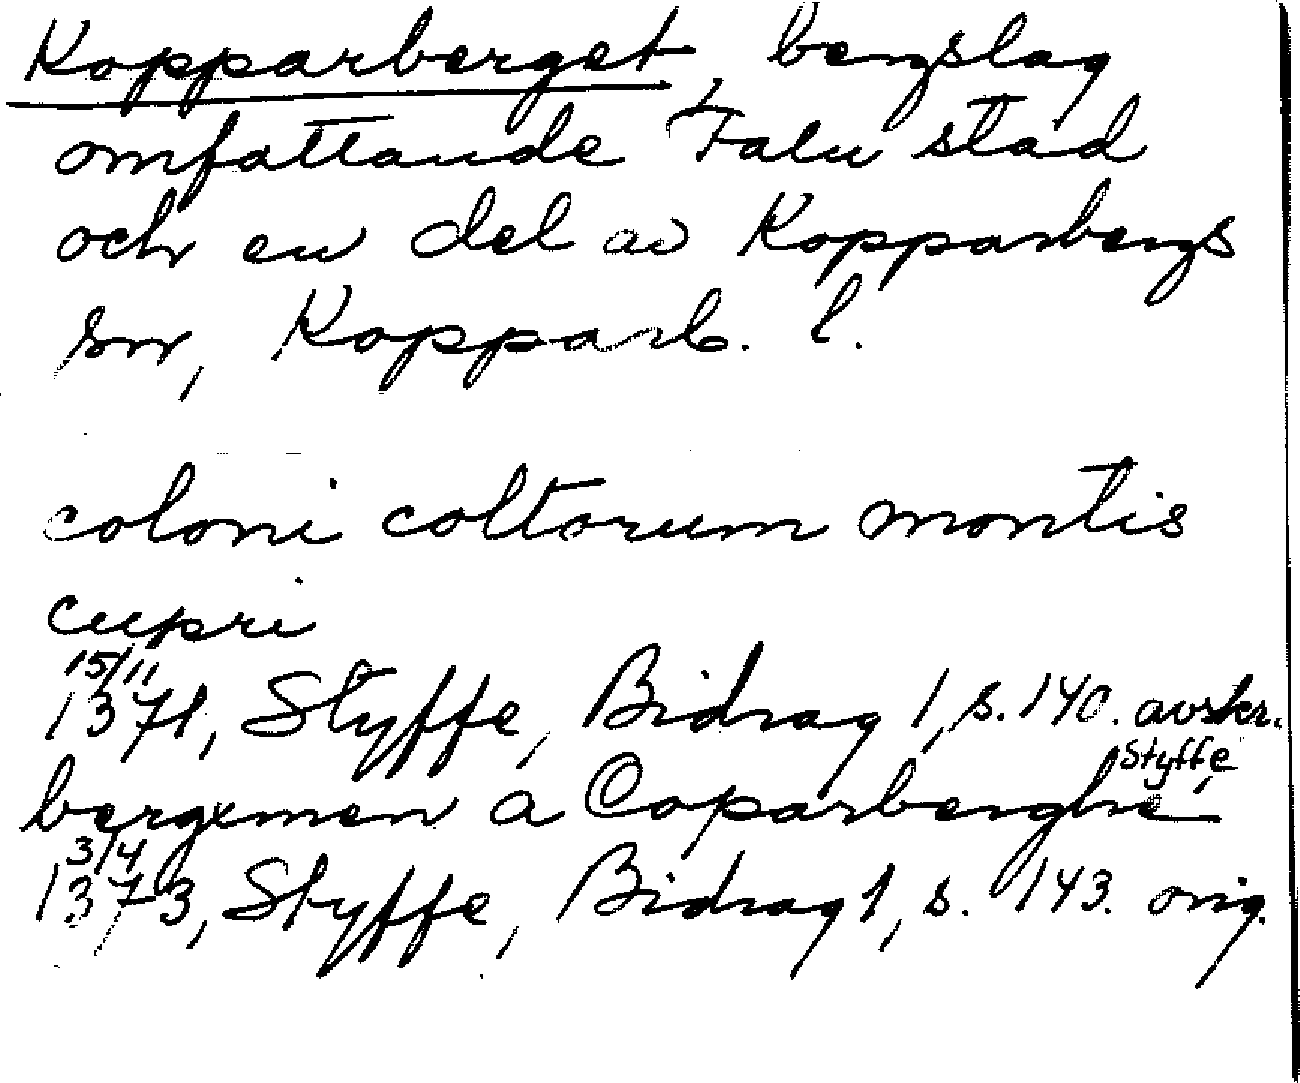 Kopparberget, bergslag
omfattande Falu stad
och en del av Kopparbergs
sn, Kopparb. l.
coloni coltorum montis
cupri
15/11
1371, Styffe, Bidrag 1, s. 140. avskr.
Styffe,
bergxmen a Coparberghe
3/4
1373, Styffe, Bidrag 1, s. 143. orig.